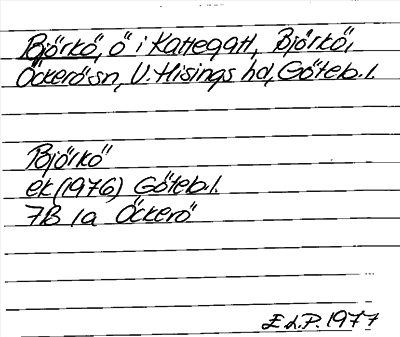 Björkö, ö i Kattegatt, Björkö,
Öckerö sn, V. Hisings hd, Göteb. l.
Björkö
ek (1976) Göteb. l.
7B 1a Öckerö
E d. P. 1977